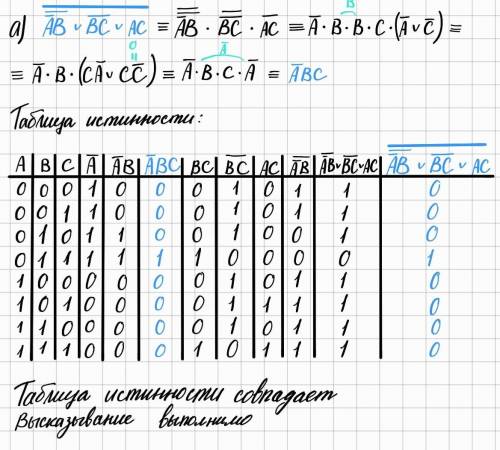 B
а) A̿̅B̿ ∨ B̿C̿ ∨ A̅C̅ ≡ A̿̅B̿ · B̿C̿ · A̅C̅ ≡ A̅ · B · B · C · (A̅ ∨ C̅) ≡
0
A̅
≡ A̅ · B · (CA̅ ∨ CC̅) ≡ A̅ · B · C · A̅ ≡ A̅BC
Таблица истинности:
A B C A̅ A̅B A̅BC BC B̅C̅ AC A̿B̅ A̿B̅∨B̅C̅∨AC A̿̅B̿ ∨ B̿C̿ ∨ A̅C̅
0 0 0 1 0 0 0 1 0 1 1 0
0 0 1 1 0 0 0 1 0 1 1 0
0 1 0 1 1 0 0 1 0 0 1 0
0 1 1 1 1 1 1 0 0 0 0 1
1 0 0 0 0 0 0 1 0 1 1 0
1 0 1 0 0 0 0 1 1 1 1 0
1 1 0 0 0 0 0 1 0 1 1 0
1 1 1 0 0 0 1 0 1 1 1 0
Таблица истинности совпадает
Высказывание выполнимо